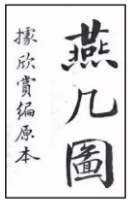 燕几圖
據欣賞編原本